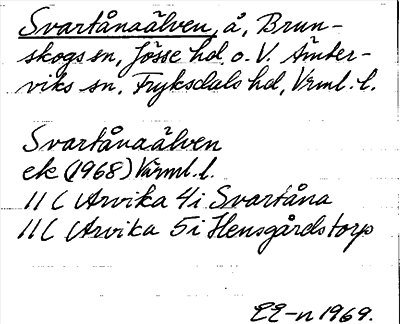 Svartånaälven, å, Brun-
skogs sn, Jösse hd o. V. Ämter-
viks sn, Fryksdals hd, Vrml. l.
Svartånaälven
ek (1968) Värml. l.
11 C Arvika 4i Svartåna
11 C Arvika 5i Hensgårdstorp
EE-n 1969.